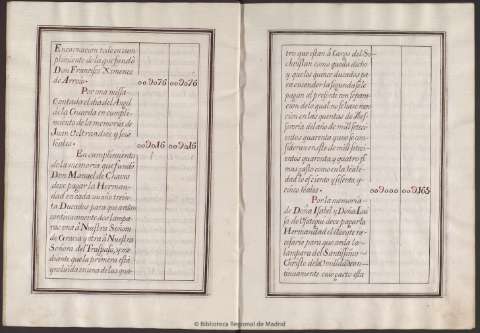 Encarnacion todo en cum-
plimiento de la que fundò
Don Francisco Ximenez
de Arroio. 00 076 00 076
Por una missa
Cantada el dia del Angel
de la Guarda en cumpli-
miento de la memoria de
Juan y Jose
00 016 00 016
En cumplimiento
de la memoria que fundò
Don Manuel de Chaves
deve pagar la Herman-
dad en cada un año trein-
ta Ducados para que ardan
continuamente dos lampa-
ras una à Nuestra Señora
de Gracia y otra à Nuestra
Señora del Traspaso, y me-
diante que la primera està
yncluida en una de las qua-
tro que estan à Cargo del Sa-
christan como queda dicho
y que los quince ducados pa-
ra encender la segunda se le
pagan al presente con separa-
cion de lo qual no se hace men-
cion en las quentas de The-
soreria del año de mil setecі-
entos quarenta y quatro se con-
sidera en este de mil setecі-
entos quarenta y quatro el
mas gasto como es la canti-
dad de ciento y sesenta y
cinco reales. 00 000 00 165
Por la memoria
de Doña Isabel y Doña Lui-
sa de deve pagar la
Hermandad el Aceyte ne-
cesario para que arda la
lampara del Santissimo
Christo de la Humildad con-
tinuamente cuio gasto està
© Biblioteca Regional de Madrid